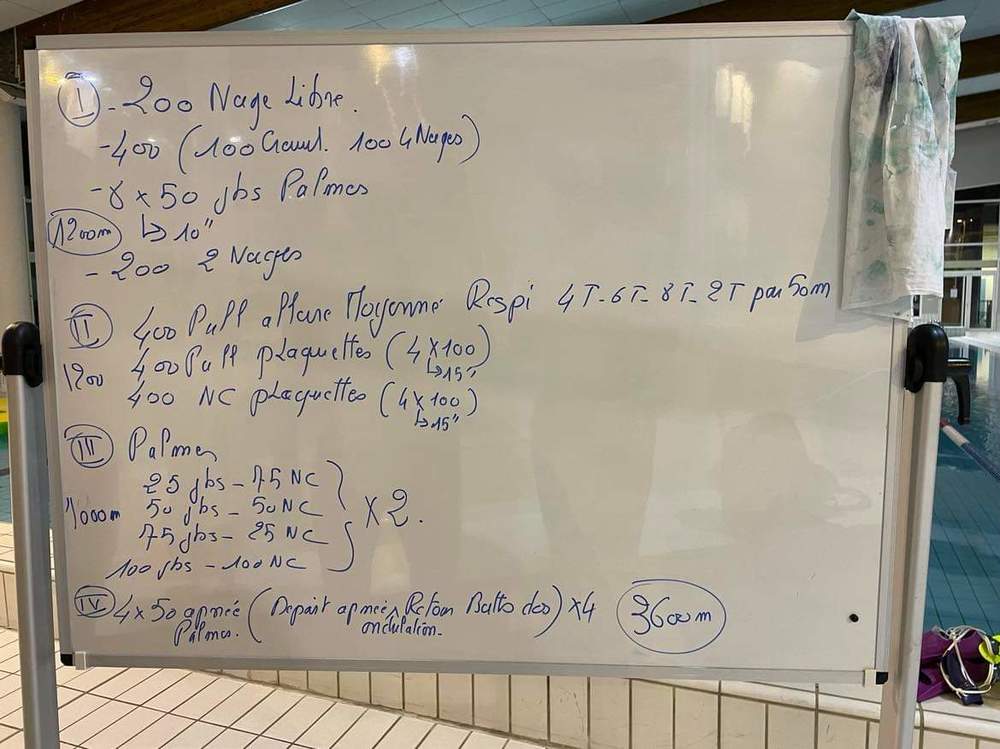 I - 200 Nage Libre.
- 400 (100 Crawl. 100 4 Nages)
- 8 x 50 jbs Palmes
1200m ↳ 10"
- 200 2 Nages
II 400 Pull allure Moyenne Respi 4T-6T-8T-2T par 50m
400 Pull plaquettes (4 x 100)
↳ 15"
1200
400 NC plaquettes (4 x 100)
↳ 15"
III Palmes
25 jbs - 75 NC
1000m 50 jbs - 50 NC
x 2.
75 jbs - 25 NC
100 jbs - 100 NC
IV 4 x 50 apnée (Depart apnée, Retour Batto dos) x4
Palmes. ondulation.
3600m